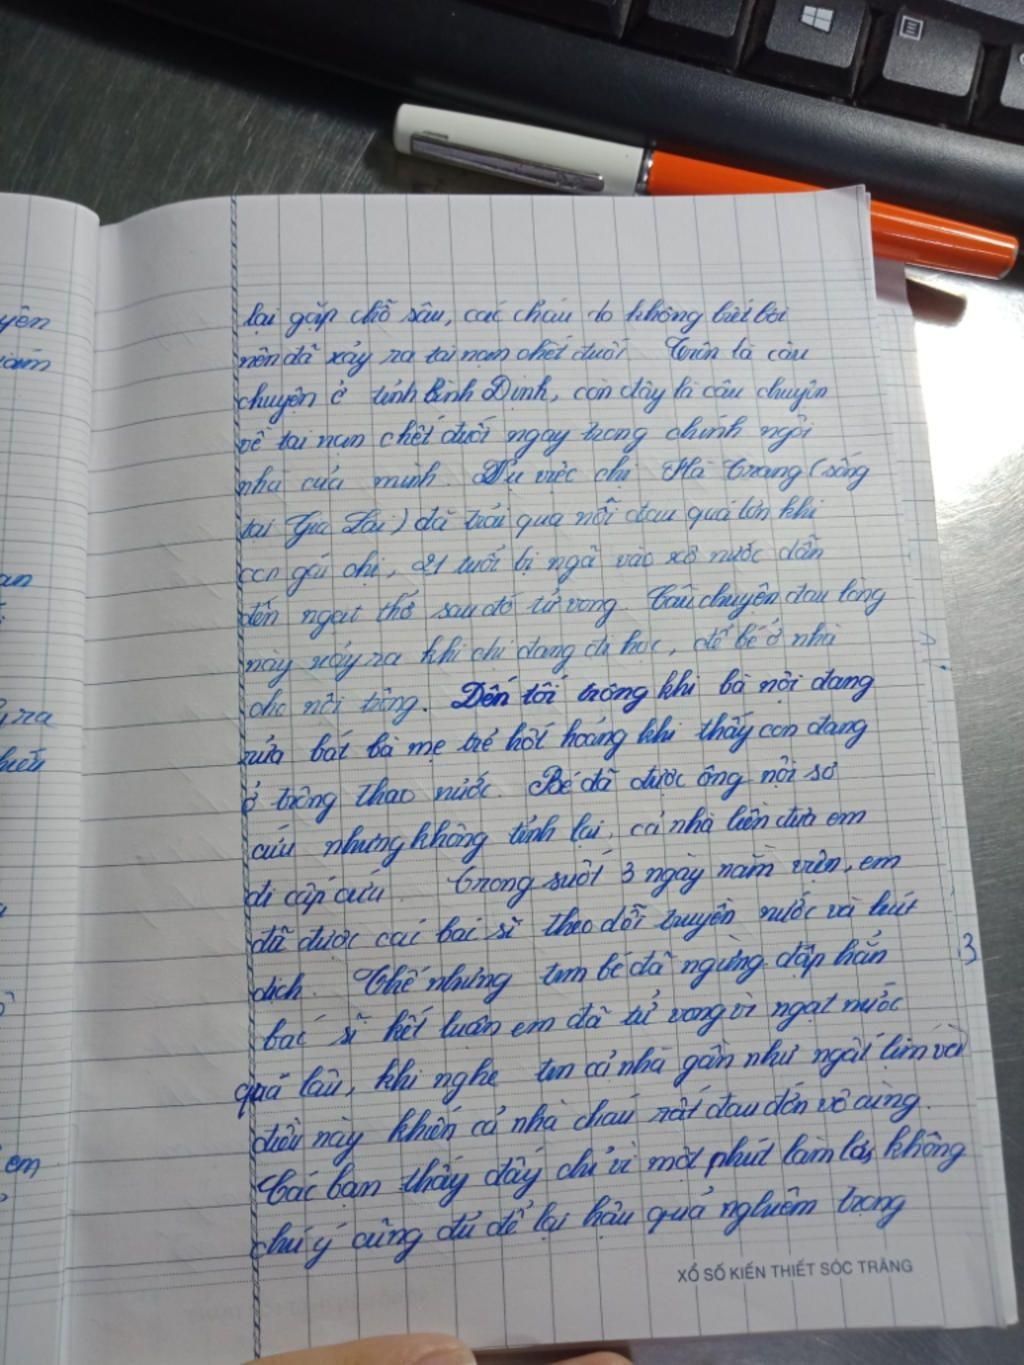 lại gặp chỗ sâu, các cháu do không biết bơi
nên đã xảy ra tai nạn chết đuối. Trên là câu
chuyện ở tỉnh Bình Định, còn đây là câu chuyện
về tai nạn chết đuối ngay trong chính ngôi
nhà của mình. Vụ việc chị Hà Trang (sống
tại Gia Lai) đã trải qua nỗi đau quá lớn khi
con gái chị, 21 tuổi bị ngã vào xô nước dẫn
đến ngạt thở sau đó tử vong. Câu chuyện đau lòng
này xảy ra khi chị đang đi học, để bé ở nhà
cho nội trông. Đến tối trong khi bà nội đang
rửa bát bà mẹ trẻ hốt hoảng khi thấy con đang
ở trong thao nước. Bé đã được ông nội sơ
cứu nhưng không tỉnh lại, cả nhà liền đưa em
đi cấp cứu. Trong suốt 3 ngày nằm viện, em
đã được các bác sĩ theo dõi truyền nước và hút
dịch. Thế nhưng tim bé đã ngừng đập hẳn
bác sĩ kết luận em đã tử vong vì ngạt nước
quá lâu, khi nghe tin cả nhà gần như ngất lịm và
điều này khiến cả nhà cháu rất đau đớn vô cùng.
Các bạn thấy đấy chỉ vì một phút làm lơ, không
chú ý cũng đủ để lại hậu quả nghiêm trọng
XỔ SỐ KIẾN THIẾT SÓC TRĂNG
yên
ra
em
3